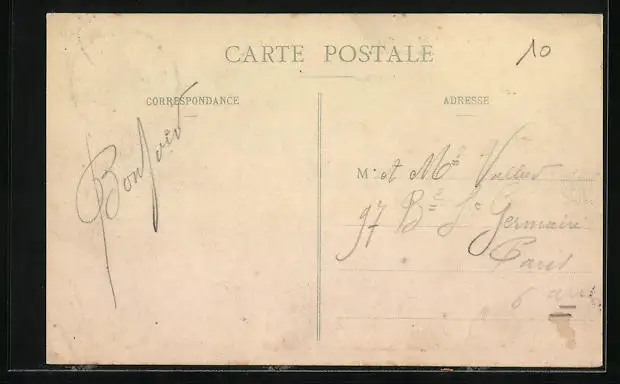 CARTE POSTALE
10
CORRESPONDANCE
ADRESSE
Bonsoir
M. et Mme
97 Bd St Germain
Paris
6 arr.